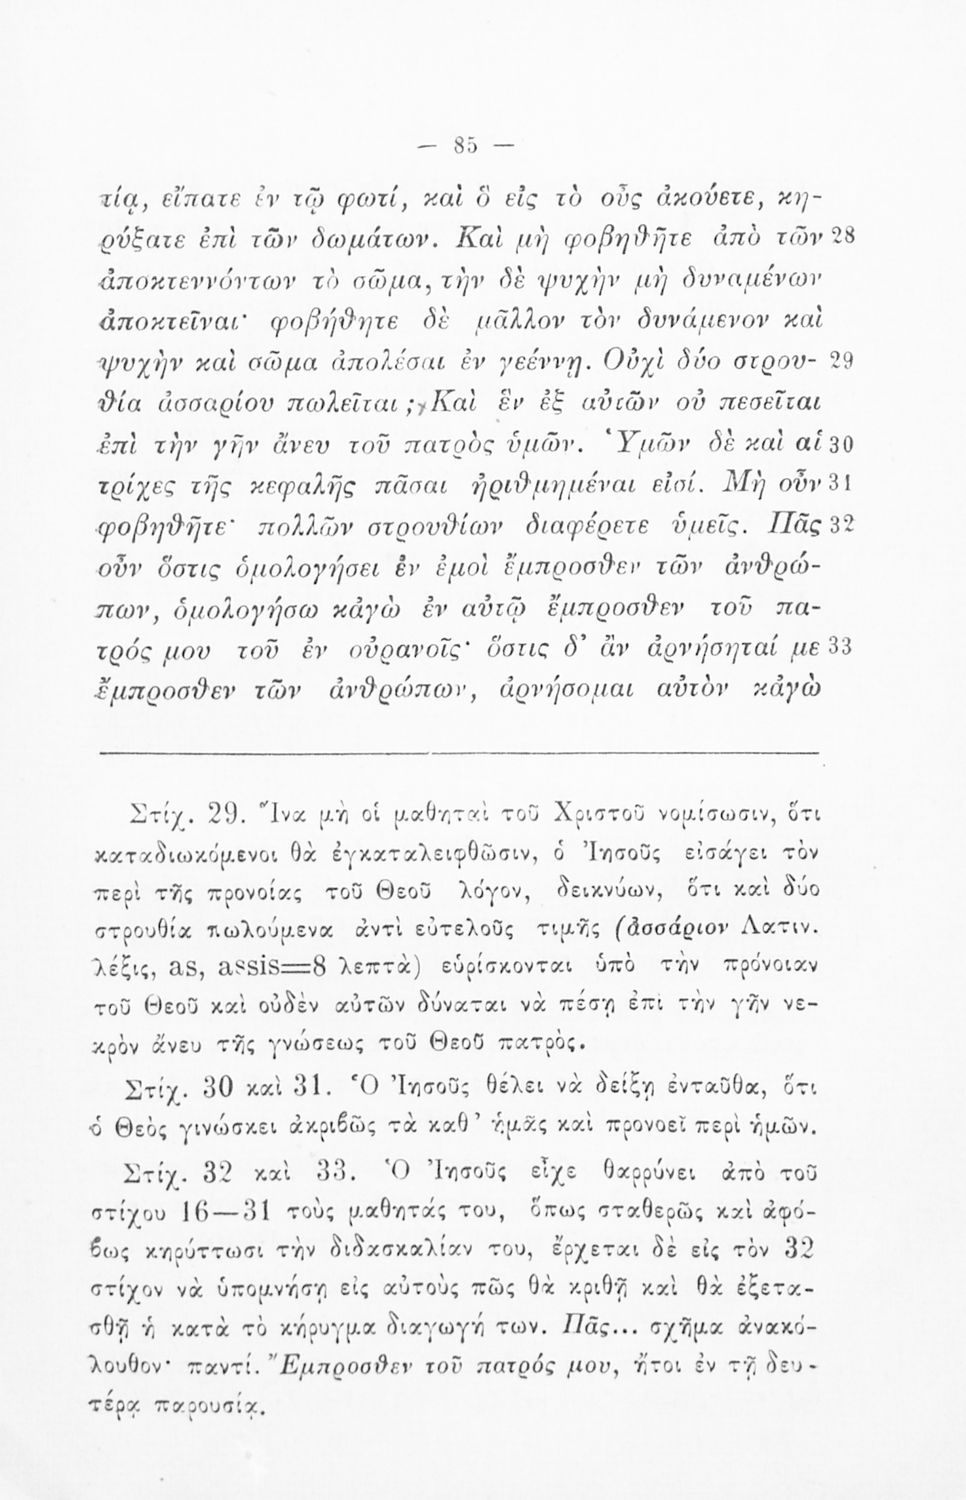 — 85 —
τίᾳ, εἴπατε ἐν τῷ φωτί, καὶ ὃ εἰς τὸ οὖς ἀκούετε, κη-
ρύξατε ἐπὶ τῶν δωμάτων. Καὶ μὴ φοβηθῆτε ἀπὸ τῶν 28
ἀποκτεννόντων τὸ σῶμα, τὴν δὲ ψυχὴν μὴ δυναμένων
ἀποκτεῖναι· φοβήθητε δὲ μᾶλλον τὸν δυνάμενον καὶ
ψυχὴν καὶ σῶμα ἀπολέσαι ἐν γεέννῃ. Οὐχὶ δύο στρου- 29
θία ἀσσαρίου πωλεῖται; Καὶ ἓν ἐξ αὐτῶν οὐ πεσεῖται
ἐπὶ τὴν γῆν ἄνευ τοῦ πατρὸς ὑμῶν. Ὑμῶν δὲ καὶ αἱ 30
τρίχες τῆς κεφαλῆς πᾶσαι ἠριθμημέναι εἰσί. Μὴ οὖν 31
φοβηθῆτε· πολλῶν στρουθίων διαφέρετε ὑμεῖς. Πᾶς 32
οὖν ὅστις ὁμολογήσει ἐν ἐμοὶ ἔμπροσθεν τῶν ἀνθρώ-
πων, ὁμολογήσω κἀγὼ ἐν αὐτῷ ἔμπροσθεν τοῦ πα-
τρός μου τοῦ ἐν οὐρανοῖς· ὅστις δ' ἂν ἀρνήσηταί με 33
ἔμπροσθεν τῶν ἀνθρώπων, ἀρνήσομαι αὐτὸν κἀγὼ
Στίχ. 29. Ἵνα μὴ οἱ μαθηταὶ τοῦ Χριστοῦ νομίσωσιν, ὅτι
καταδιωκόμενοι θὰ ἐγκαταλειφθῶσιν, ὁ Ἰησοῦς εἰσάγει τὸν
περὶ τῆς προνοίας τοῦ Θεοῦ λόγον, δεικνύων, ὅτι καὶ δύο
στρουθία πωλούμενα ἀντὶ εὐτελοῦς τιμῆς (ἀσσάριον Λατιν.
λέξις, as, assis=8 λεπτὰ) εὑρίσκονται ὑπὸ τὴν πρόνοιαν
τοῦ Θεοῦ καὶ οὐδὲν αὐτῶν δύναται νὰ πέσῃ ἐπὶ τὴν γῆν νε-
κρὸν ἄνευ τῆς γνώσεως τοῦ Θεοῦ πατρὸς.
Στίχ. 30 καὶ 31. Ὁ Ἰησοῦς θέλει νὰ δείξῃ ἐνταῦθα, ὅτι
ὁ Θεὸς γινώσκει ἀκριβῶς τὰ καθ' ἡμᾶς καὶ προνοεῖ περὶ ἡμῶν.
Στίχ. 32 καὶ 33. Ὁ Ἰησοῦς εἶχε θαρρύνει ἀπὸ τοῦ
στίχου 16—31 τοὺς μαθητάς του, ὅπως σταθερῶς καὶ ἀφό-
βως κηρύττωσι τὴν διδασκαλίαν του, ἔρχεται δὲ εἰς τὸν 32
στίχον νὰ ὑπομνήσῃ εἰς αὐτοὺς πῶς θὰ κριθῇ καὶ θὰ ἐξετα-
σθῇ ἡ κατὰ τὸ κήρυγμα διαγωγή των. Πᾶς... σχῆμα ἀνακό-
λουθον· παντί. Ἔμπροσθεν τοῦ πατρός μου, ἤτοι ἐν τῇ δευ-
τέρᾳ παρουσίᾳ.